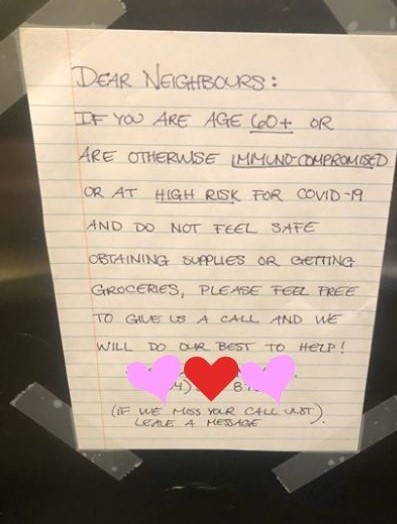 DEAR NEIGHBOURS:
IF YOU ARE AGE 60+ OR
ARE OTHERWISE IMMUNO-COMPROMISED
OR AT HIGH RISK FOR COVID-19
AND DO NOT FEEL SAFE
OBTAINING SUPPLIES OR GETTING
GROCERIES, PLEASE FEEL FREE
TO GIVE US A CALL AND WE
WILL DO OUR BEST TO HELP!
4) 8
(IF WE MISS YOUR CALL JUST).
LEAVE A MESSAGE